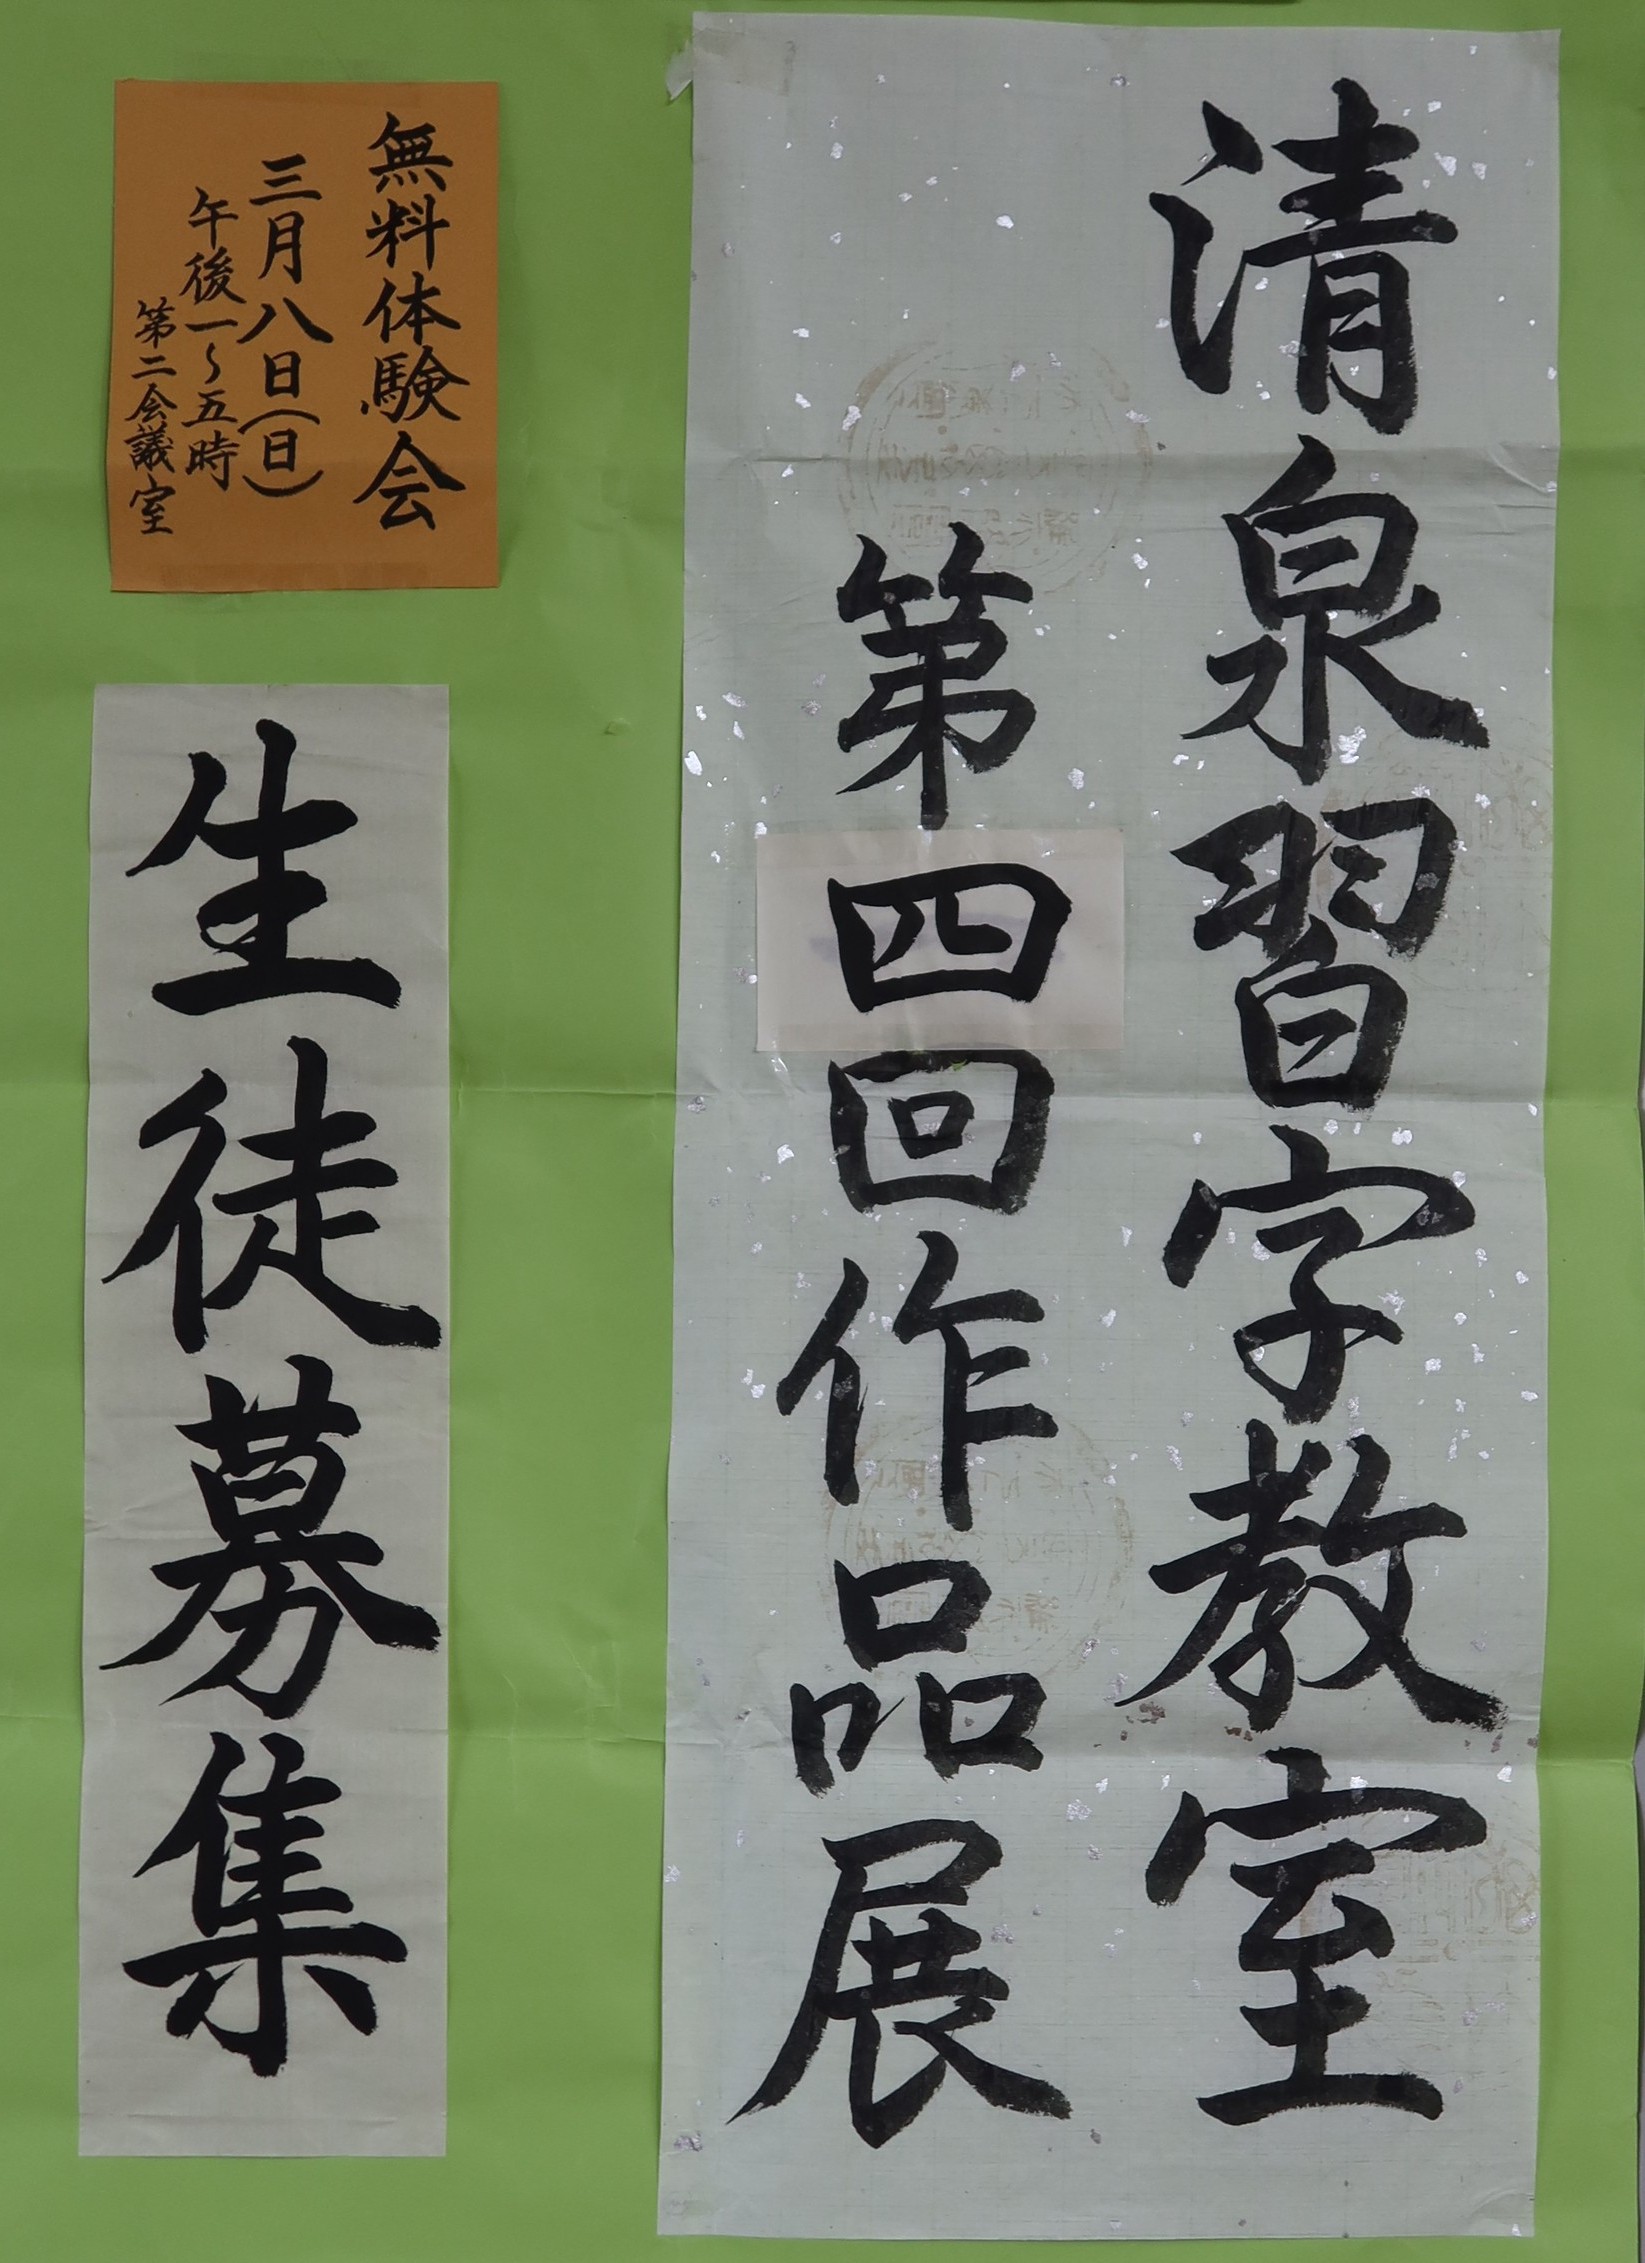 清泉習字教室
第四回作品展
無料体験会
三月八日(日)
午後一～五時
第二会議室
生徒募集